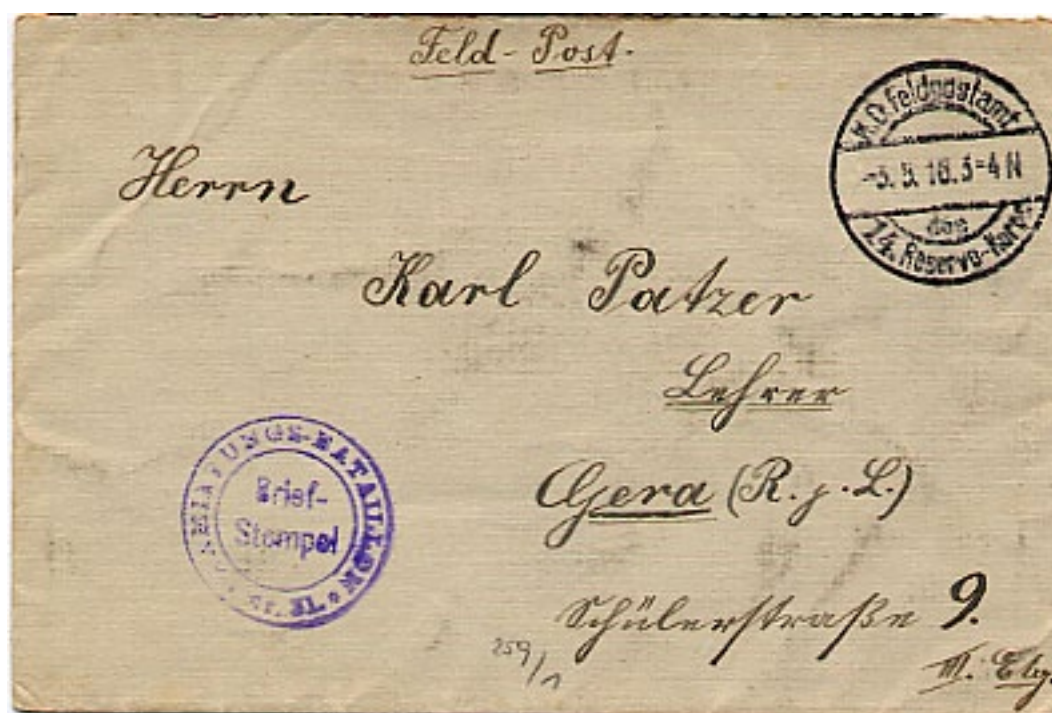 Feld-Post.
K.D. Feldpostamt
-3. 5. 16. 3-4 N
des
14. Reserve-Korps
Herrn
Karl Patzer
Lehrer
Gera (R. j. L.)
Schülerstraße 9.
III. Etg.
ARMIERUNGS-BATAILLON
Brief-
Stempel
259/1